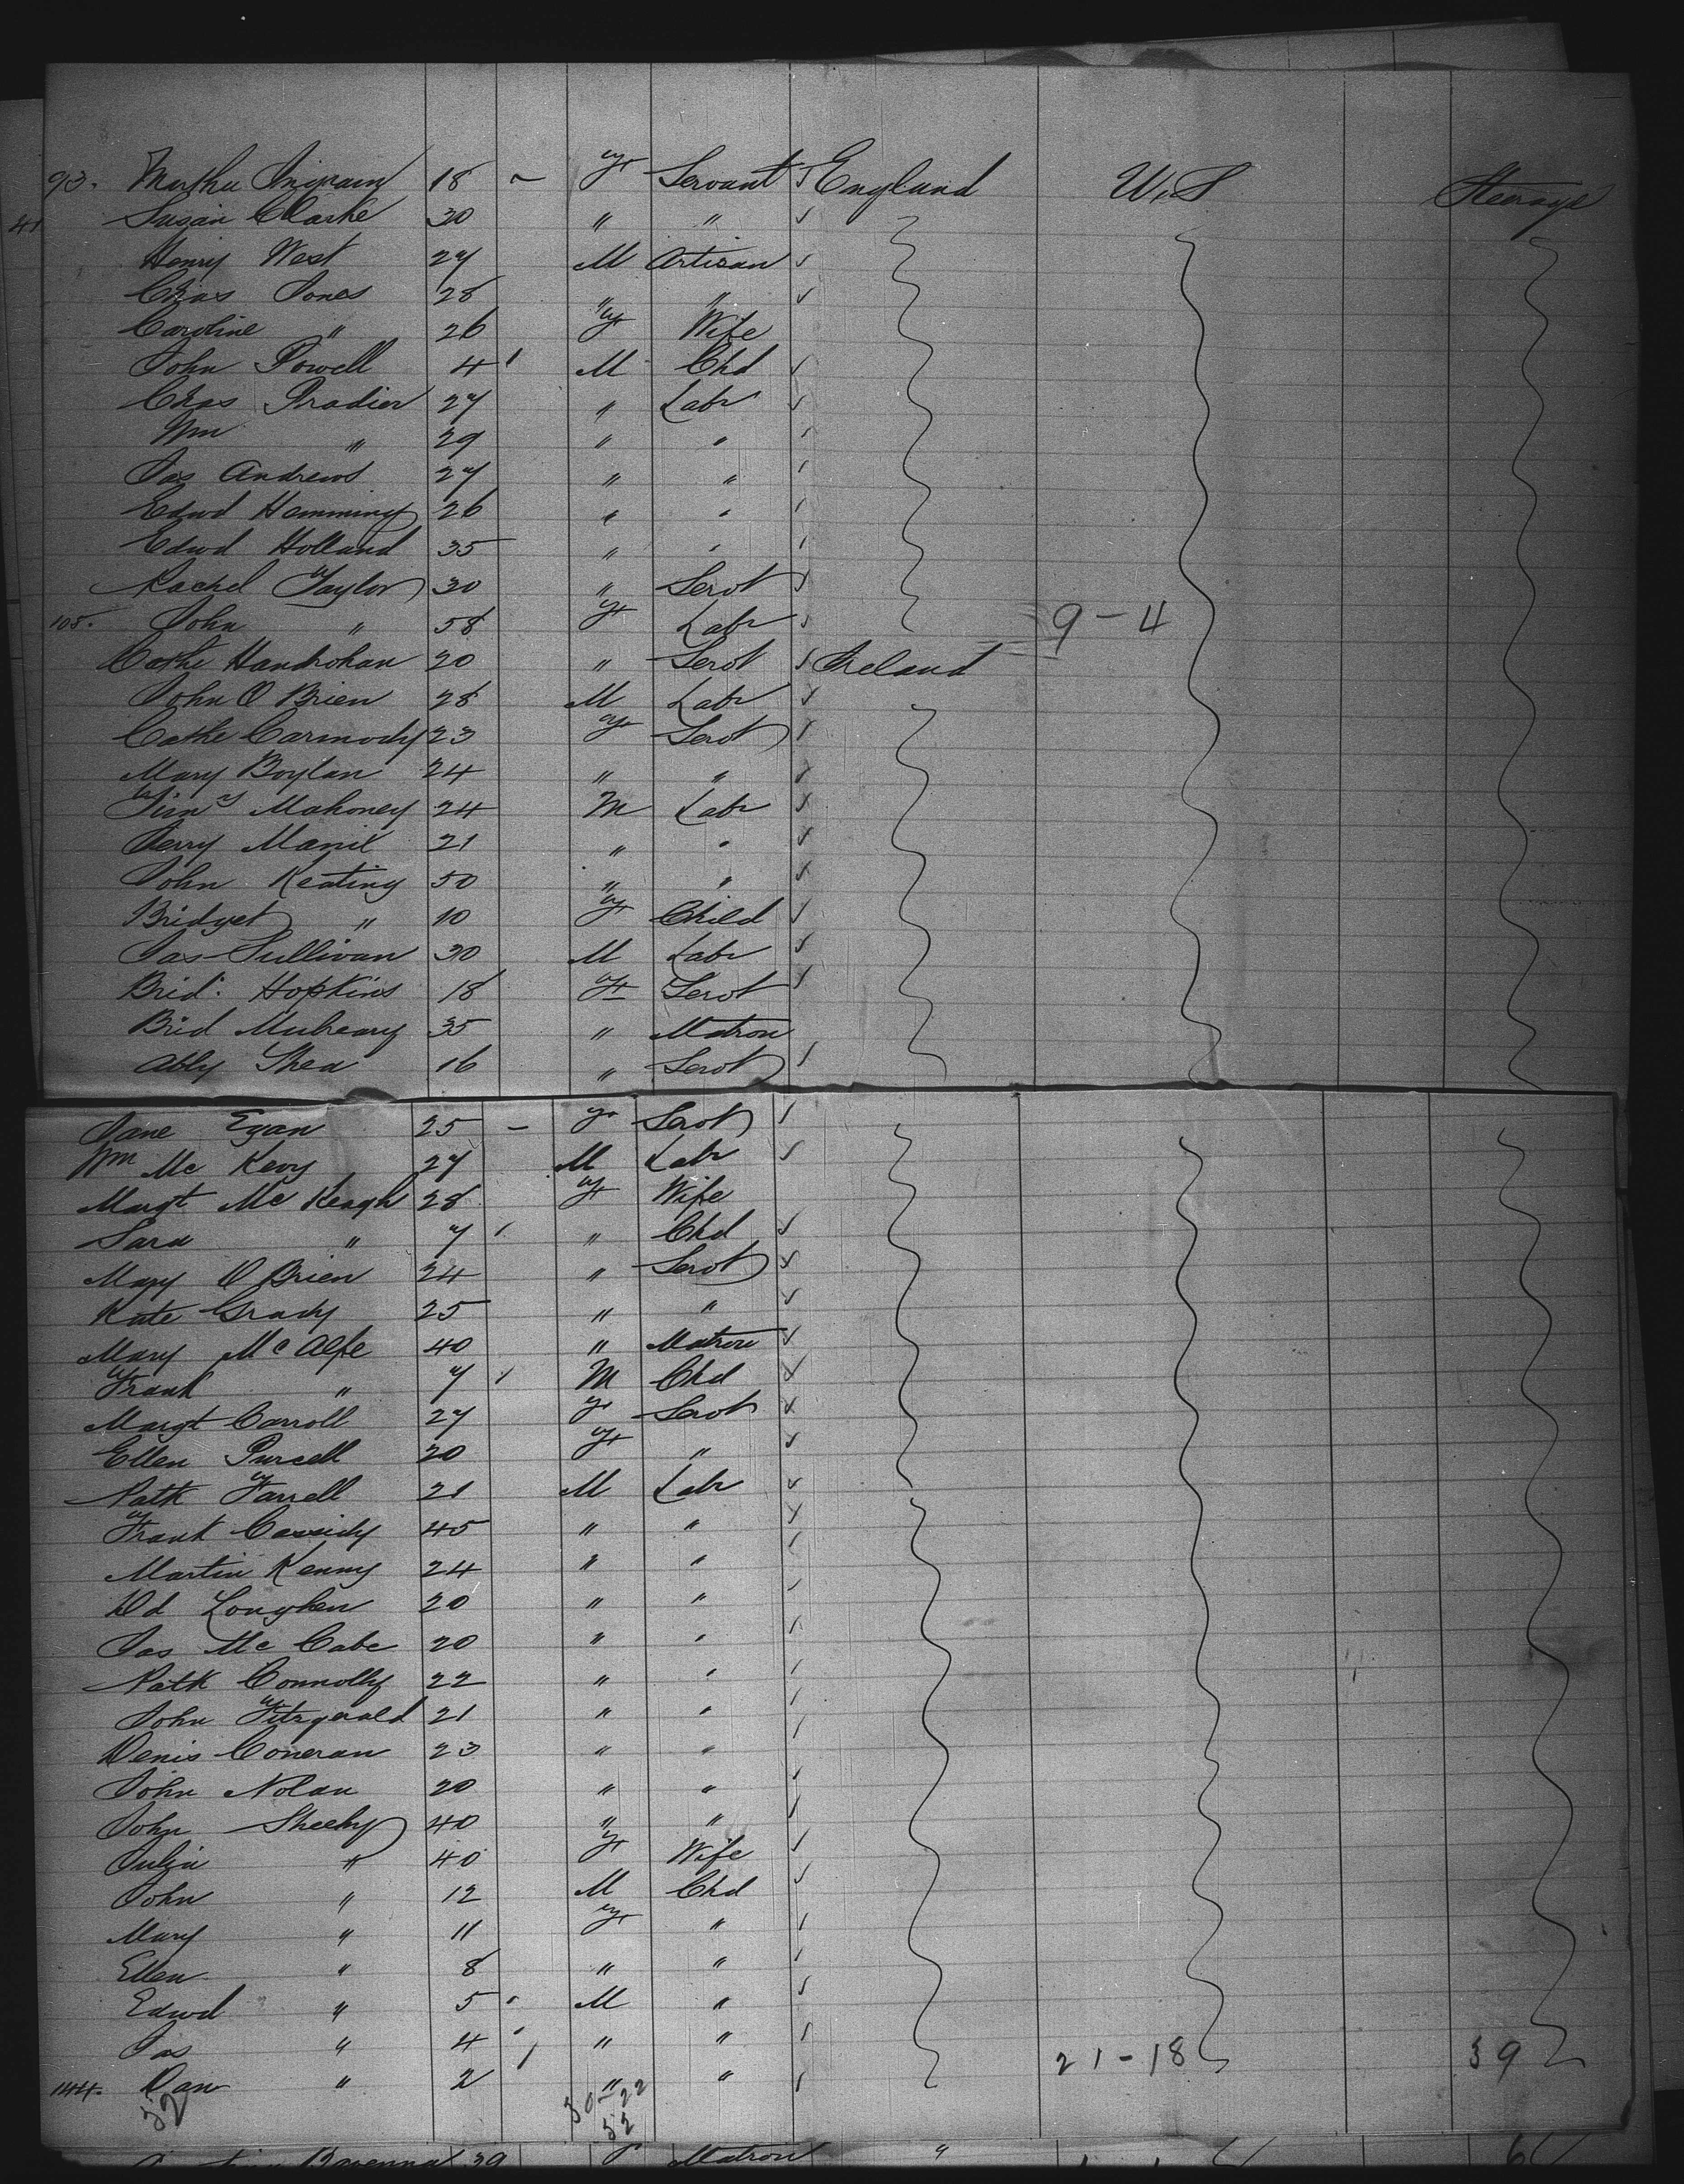 93. Martha Ingram 18 - F Servant ✓ England U.S Steerage
41 Susan Clarke 30 " " ✓
Henry West 27 M Artisan ✓
Chas Jones 28 " " ✓
Caroline " 26 F Wife
John Powell 4 ' M Chd ✓
Chas Pradier 27 " Labr ✓
Wm " 29 " " ✓
Jas Andrews 27 " " ✓
Edwd Hemming 26 " " ✓
Edwd Holland 35 " " ✓
Rachel Taylor 30 " Servt ✓
105. John " 58 F Labr ✓ 9-4
Cathe Handrohan 20 " Servt ✓ Ireland
John O Brien 28 M Labr ✓
Cathe Carmody 23 F Servt ✓
Mary Boylan 24 " " ✓
Timy Mahoney 24 M Labr ✓
Jerry Manix 21 " " ✓
John Keating 50 " " ✓
Bridget " 10 F Child ✓
Jas Sullivan 30 M Labr ✓
Brid. Hopkins 18 F Servt ✓
Brid Mulreany 35 " Matron
Abby Shea 16 " Servt ✓
Jane Egan 25 - F Servt ✓
Wm Mc Kevy 27 M Labr ✓
Margt Mc Keagh 28 F Wife
Sara " 7 ' " Chd ✓
Mary O Brien 24 " Servt ✓
Kate Grady 25 " " ✓
Mary McAlpe 40 " Matron ✓
Frank " 7 ' M Chd ✓
Margt Carroll 27 F Servt ✓
Ellen Purcell 20 F " ✓
Patk Farrell 21 M Labr ✓
Frank Cassidy 45 " " ✓
Martin Kenny 24 " " ✓
Dd Loughen 20 " " ✓
Jas Mc Cabe 20 " " ✓
Patk Connolly 22 " " ✓
John Fitzgerald 21 " " ✓
Denis Coneran 23 " " ✓
John Nolan 20 " " ✓
John Sheehy 40 " " ✓
Julia " 40 F Wife ✓
John " 12 M Chd ✓
Mary " 11 F " ✓
Ellen " 8 " " ✓
Edwd " 5 ' M " ✓
Jas " 4 ' " " ✓ 21-18 39
144. Dan " 2 ' " " ✓
52 30-22
52
39 Matron "